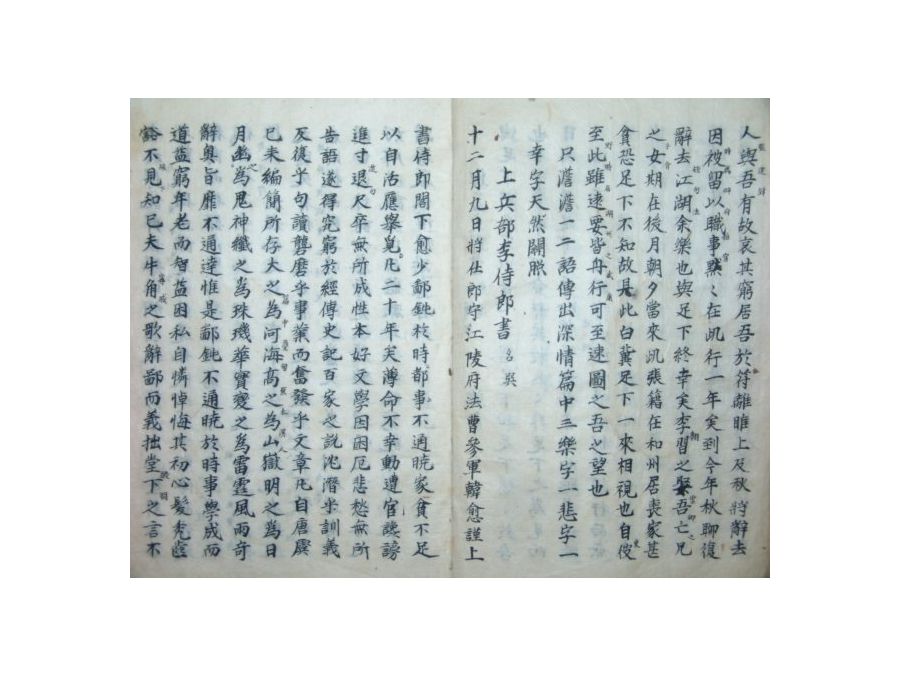 人與吾有故哀其窮居吾於符離睢上及秋將辭去
因被留以職事黙〻在此行一年矣到今年秋聊復
辭去江湖余樂也與足下終幸矣李習之娶吾亡兄
之女期在後月朝夕當來此張籍在和州居喪家甚
貧恐足下不知故具此白冀足下一來相視也自彼
至此雖遠要皆舟行可至速圖之吾之望也
只澹澹一二語傳出深情篇中三樂字一悲字一
幸字天然關照
上兵部李侍郎書
十二月九日將仕郎守江陵府法曹參軍韓愈謹上
書侍郎閤下愈少鄙鈍於時都事不通曉家貧不足
以自活應舉覓凡二十年矣薄命不幸動遭官謗
進寸退尺卒無所成性本好文學因困厄悲愁無所
告語遂得究窮於經傳史記百家之說沈潛乎訓義
反復乎句讀礱磨乎事業而奮發乎文章凡自唐虞
已來編簡所存大之為河海高之為山嶽明之為日
月幽之為鬼神纖之為珠璣華實變之為雷霆風雨奇
辭奧旨靡不通達惟是鄙鈍不通曉於時事學成而
道益窮年老而智益困私自憐悼悔其初心髮禿齒
豁不見知己夫牛角之歌辭鄙而義拙堂下之言不